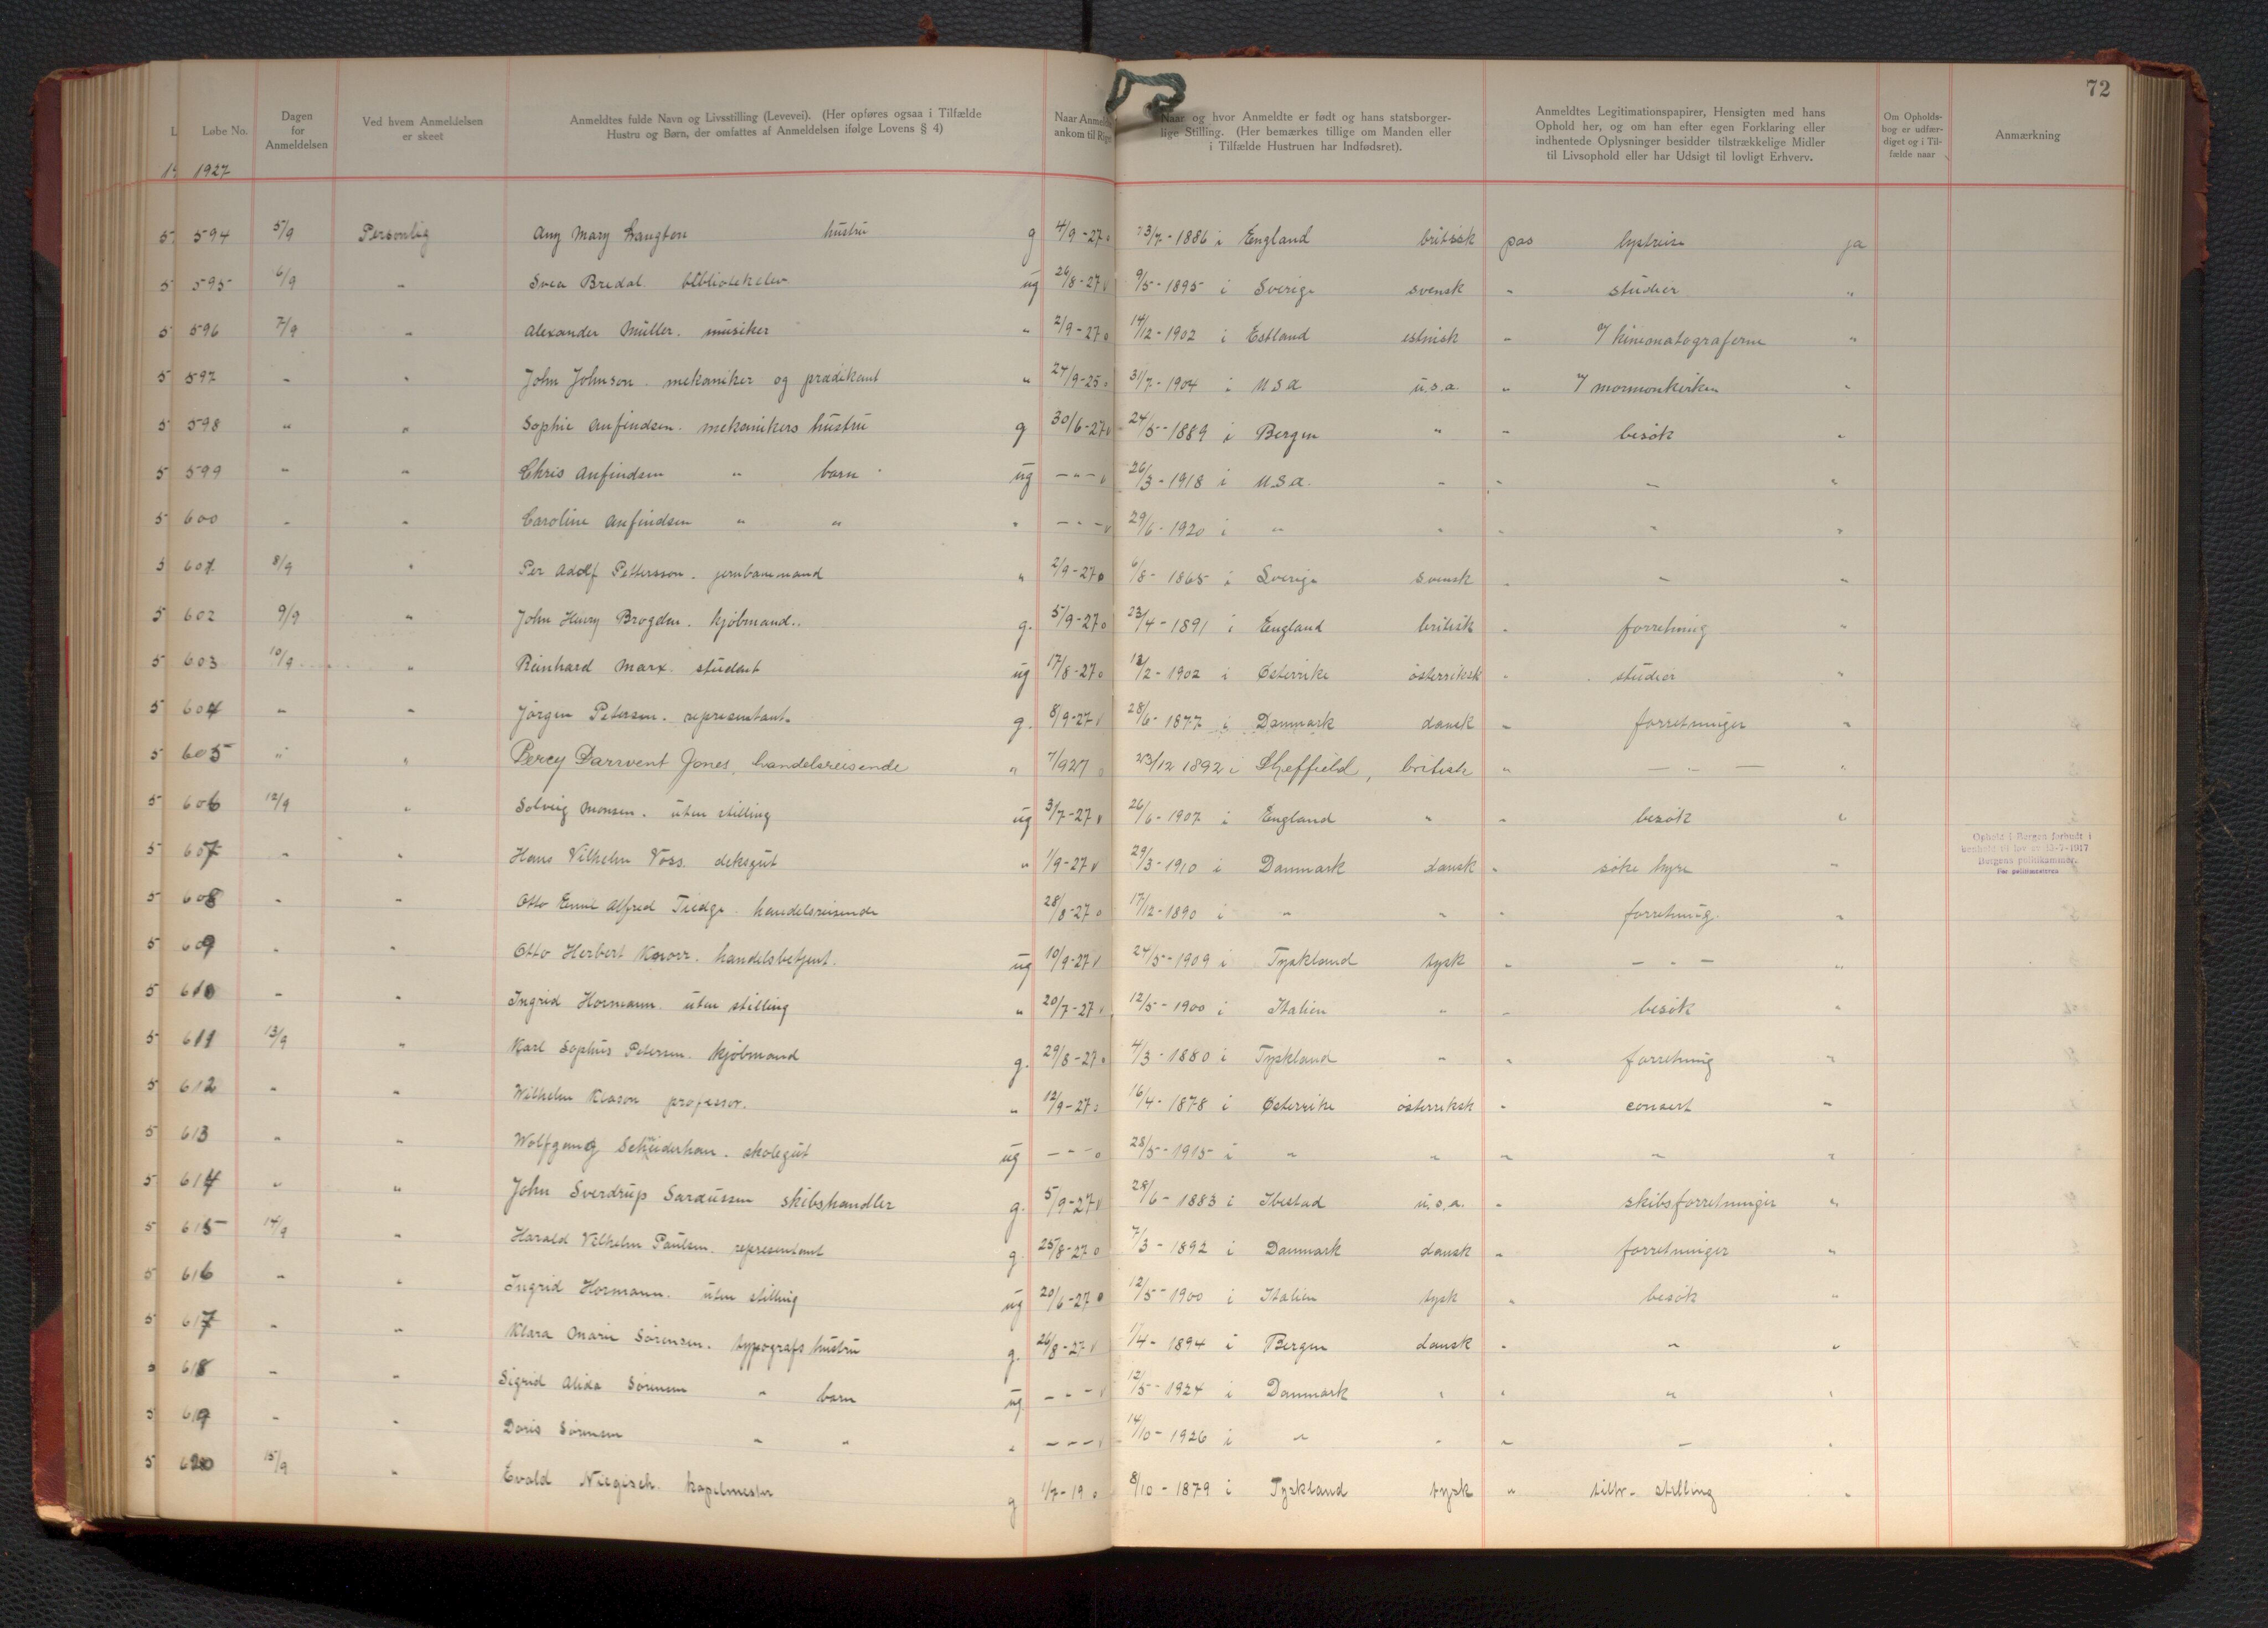 72
Løbe No.
Dagen for Anmeldelsen
Ved hvem Anmeldelsen er skeet
Anmeldtes fulde Navn og Livsstilling (Levevei). (Her opføres ogsaa i Tilfælde Hustru og Børn, der omfattes af Anmeldelsen ifølge Lovens § 4)
Naar Anmeldte ankom til Riget
Naar og hvor Anmeldte er født og hans statsborgerlige Stilling. (Her bemærkes tillige om Manden eller i Tilfælde Hustruen har Indfødsret).
Anmeldtes Legitimationspapirer, Hensigten med hans Ophold her, og om han efter egen Forklaring eller indhentede Oplysninger besidder tilstrækkelige Midler til Livsophold eller har Udsigt til lovligt Erhverv.
Om Opholdsbog er udfærdiget og i Tilfælde naar
Anmærkning
1927
594 5/9 Personlig Any Mary Langton hustru g 4/9-27 23/7-1886 i England britisk pas lystreise ja
595 6/9 " Svea Bredal bibliotekelev ug 26/8-27 9/5-1895 i Sverige svensk " studier "
596 7/9 " Alexander Müller. musiker " 2/9-27 14/12-1902 i Estland estnisk " v/ kinematograferne "
597 " " John Johnson. mekaniker og prædikant " 27/9-25 31/7-1904 i U S A u.s.a. " v/ mormonkirken "
598 " " Sophie Anfindsen. mekanikers hustru g 30/6-27 24/5-1889 i Bergen " " besök "
599 " " Chris Anfindsen " barn ug - " - 26/3-1918 i U.S.A. " " " "
600 " " Caroline Anfindsen " " " - " - 29/6-1920 i " " " " "
601 8/9 " Per Adolf Pettersson. jernbanemand " 2/9-27 6/8-1865 i Sverige svensk " " "
602 9/9 " John Henry Brogden. kjöbmand.. g. 5/9-27 23/4-1891 i England britisk " forretning "
603 10/9 " Reinhard Marx. student ug 17/8-27 12/2-1902 i Østerrike österriksk " studier "
604 " " Jörgen Petersen. representant. g. 8/9-27 28/6-1877 i Danmark dansk " forretninger "
605 " " Percy Darwent Jones, handelsreisende " 7/927 23/12 1892 i Sheffield, britisk " - " - "
606 12/9 " Solveig Monsen. uten stilling ug 3/7-27 26/6-1907 i England " " besök "
607 " " Hans Vilhelm Voss. deksgut " 1/9-27 29/3-1910 i Danmark dansk " söke hyre " Ophold i Bergen forbudt i henhold til lov av 13-7-1917 Bergens politikammer. For politimesteren
608 " " Otto Emil Alfred Tiedge. handelsreisende 28/8-27 17/12-1890 i " " " forretning. "
609 " " Otto Herbert Knorr. handelsbetjent. ug 10/9-27 24/5-1909 i Tyskland tysk " - " - "
610 " " Ingrid Hormann. uten stilling " 20/7-27 12/5-1900 i Italien " " besök "
611 13/9 " Karl Sophus Petersen. kjöbmand g. 29/8-27 4/3-1880 i Tyskland " " forretning "
612 " " Wilhelm Klasen professor. " 12/9-27 16/4-1878 i Østerrike österriksk " consert "
613 " " Wolfgang Schneiderhan. skolegut ug - " - 28/5-1915 i " " " " "
614 " " John Sverdrup skibshandler g. 5/9-27 28/6-1883 i Ibestad u.s.a. " skibsforretninger "
615 14/9 " Harald Vilhelm Paulsen. representant g. 25/8-27 7/3-1892 i Danmark dansk " forretninger "
616 " " Ingrid Hormann. uten stilling ug 20/6-27 12/5-1900 i Italien tysk " besök "
617 " " Klara Marie Sörensen. typografs hustru g. 26/8-27 1/4-1894 i Bergen dansk " " "
618 " " Sigrid Alida Sörensen " barn ug. - " - 12/5-1924 i Danmark " " " "
619 " " Doris Sörensen " " " - " - 14/10-1926 i " " " " "
620 15/9 " Evald Niegisch. kapelmester g 1/7-19 8/10-1879 i Tyskland tysk " tiltr. stilling "